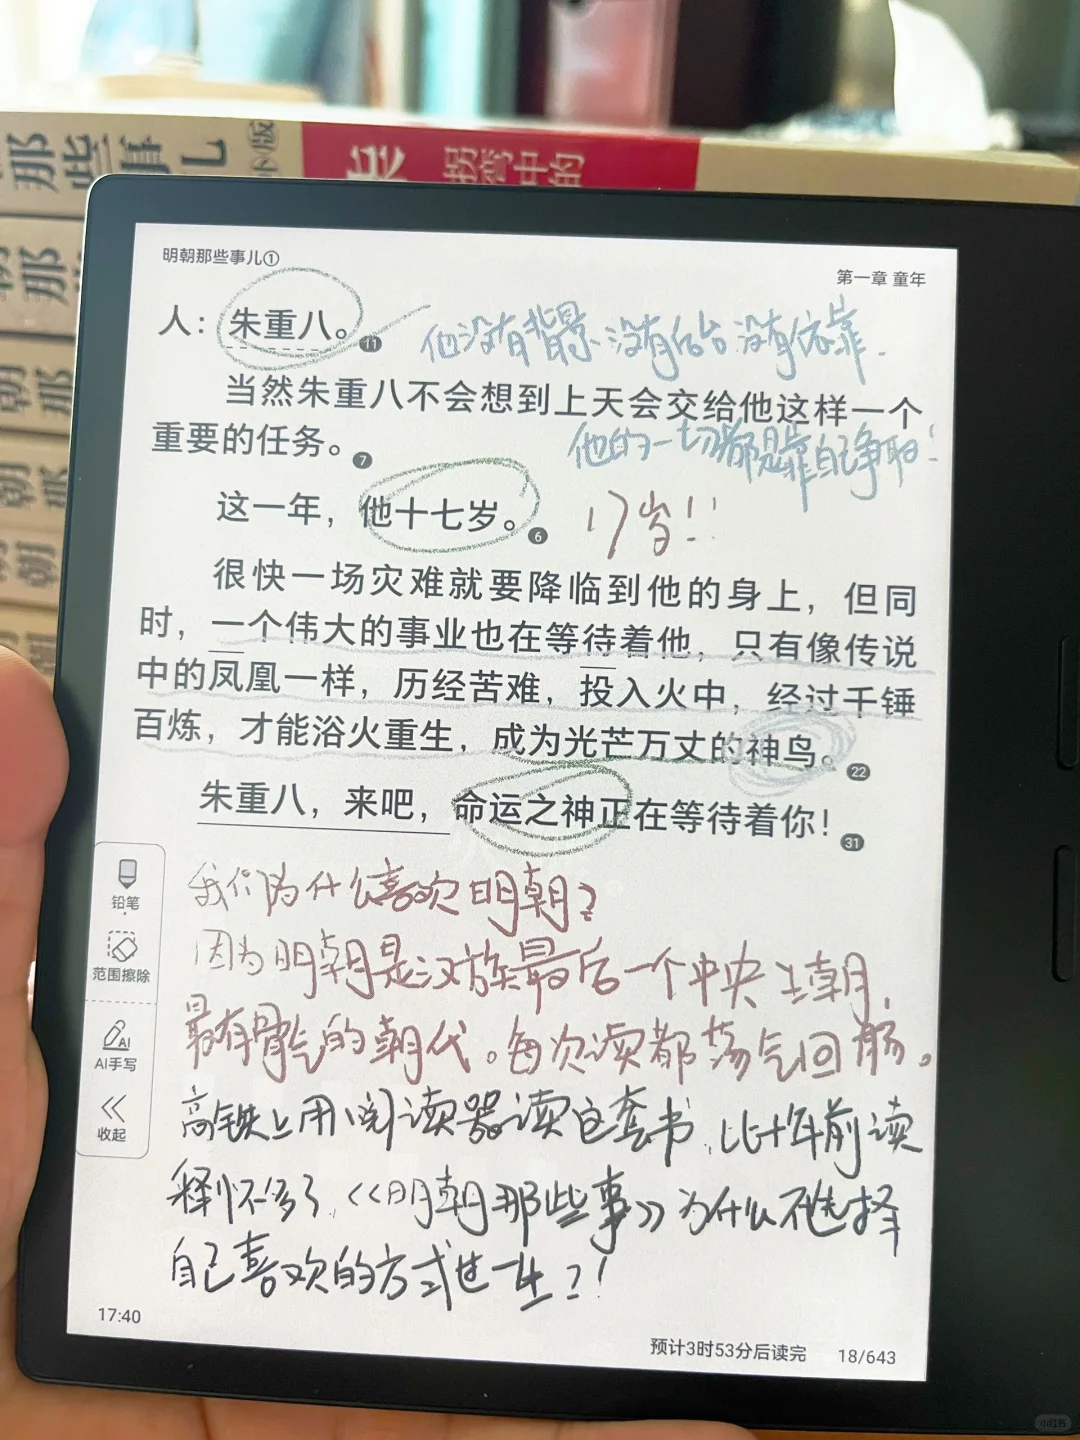 那些事儿
拐弯中的
明朝那些事儿①
第一章 童年
人：朱重八。11
他没有背景、没有后台、没有依靠.
当然朱重八不会想到上天会交给他这样一个
重要的任务。7
他的一切都是靠自己争取!
这一年，他十七岁。6
17岁!!
很快一场灾难就要降临到他的身上，但同
时，一个伟大的事业也在等待着他，只有像传说
中的凤凰一样，历经苦难，投入火中，经过千锤
百炼，才能浴火重生，成为光芒万丈的神鸟。22
朱重八，来吧，命运之神正在等待着你！31
我们为什么喜欢明朝?
因为明朝是汉族最后一个中央王朝,
最有骨气的朝代。每次读都荡气回肠。
高铁上用阅读器读这套书,比十年前读
释怀多了,《明朝那些事》为什么不选择
自己喜欢的方式过一生?!
铅笔
范围擦除
AI手写
收起
17:40
预计3时53分后读完 18/643
小红书